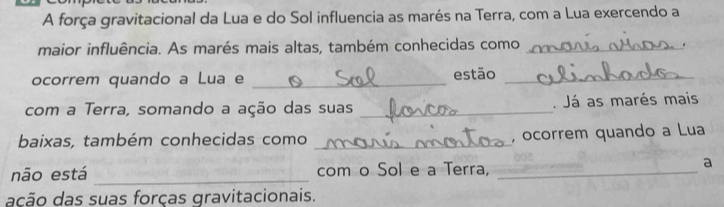 A força gravitacional da Lua e do Sol influencia as marés na Terra, com a Lua exercendo a
maior influência. As marés mais altas, também conhecidas como marés vivas,
ocorrem quando a Lua e o Sol estão alinhados
com a Terra, somando a ação das suas forças. Já as marés mais
baixas, também conhecidas como marés mortas, ocorrem quando a Lua
não está ______ com o Sol e a Terra, ______ a
ação das suas forças gravitacionais.